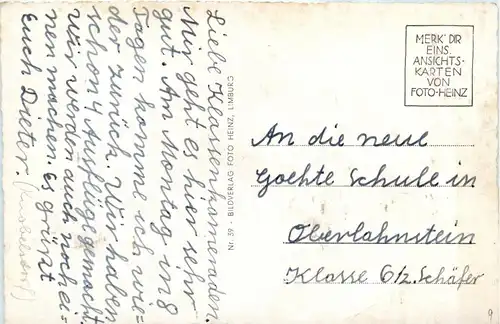 Liebe Klassenkameraden.
Mir geht es hier sehr
gut. Am Montag in 8
Tagen komme ich wie=
der zurück. Wir haben
schon 4 Ausflüge gemacht.
wir werden auch noch ei=
nen machen. Es grüßt
Euch Dieter.
Nr. 59 - BILDVERLAG FOTO HEINZ, LIMBURG
MERK' DIR
EINS.
ANSICHTS-
KARTEN
VON
FOTO-HEINZ
An die neue
Goehte Schule in
Oberlahnstein
Klasse 6/z. Schäfer
9